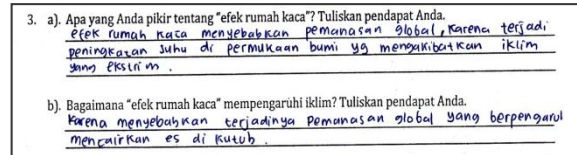 3. a). Apa yang Anda pikir tentang "efek rumah kaca"? Tuliskan pendapat Anda.
efek rumah kaca menyebabkan pemanasan global, karena terjadi
peningkatan suhu di permukaan bumi yg mengakibatkan iklim
yang ekstrim.
b). Bagaimana "efek rumah kaca" mempengaruhi iklim? Tuliskan pendapat Anda.
Karena menyebabkan terjadinya pemanasan global yang berpengaruh
mencairkan es di kutub.